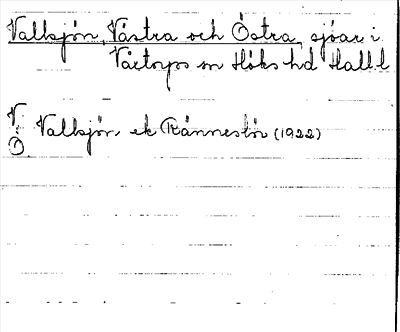 Vallsjön, Västra och Östra, sjöar i
Vårtorps sn Höks hd Hall l
V.
Ö. Vallsjön ek Ränneslöv (1922)